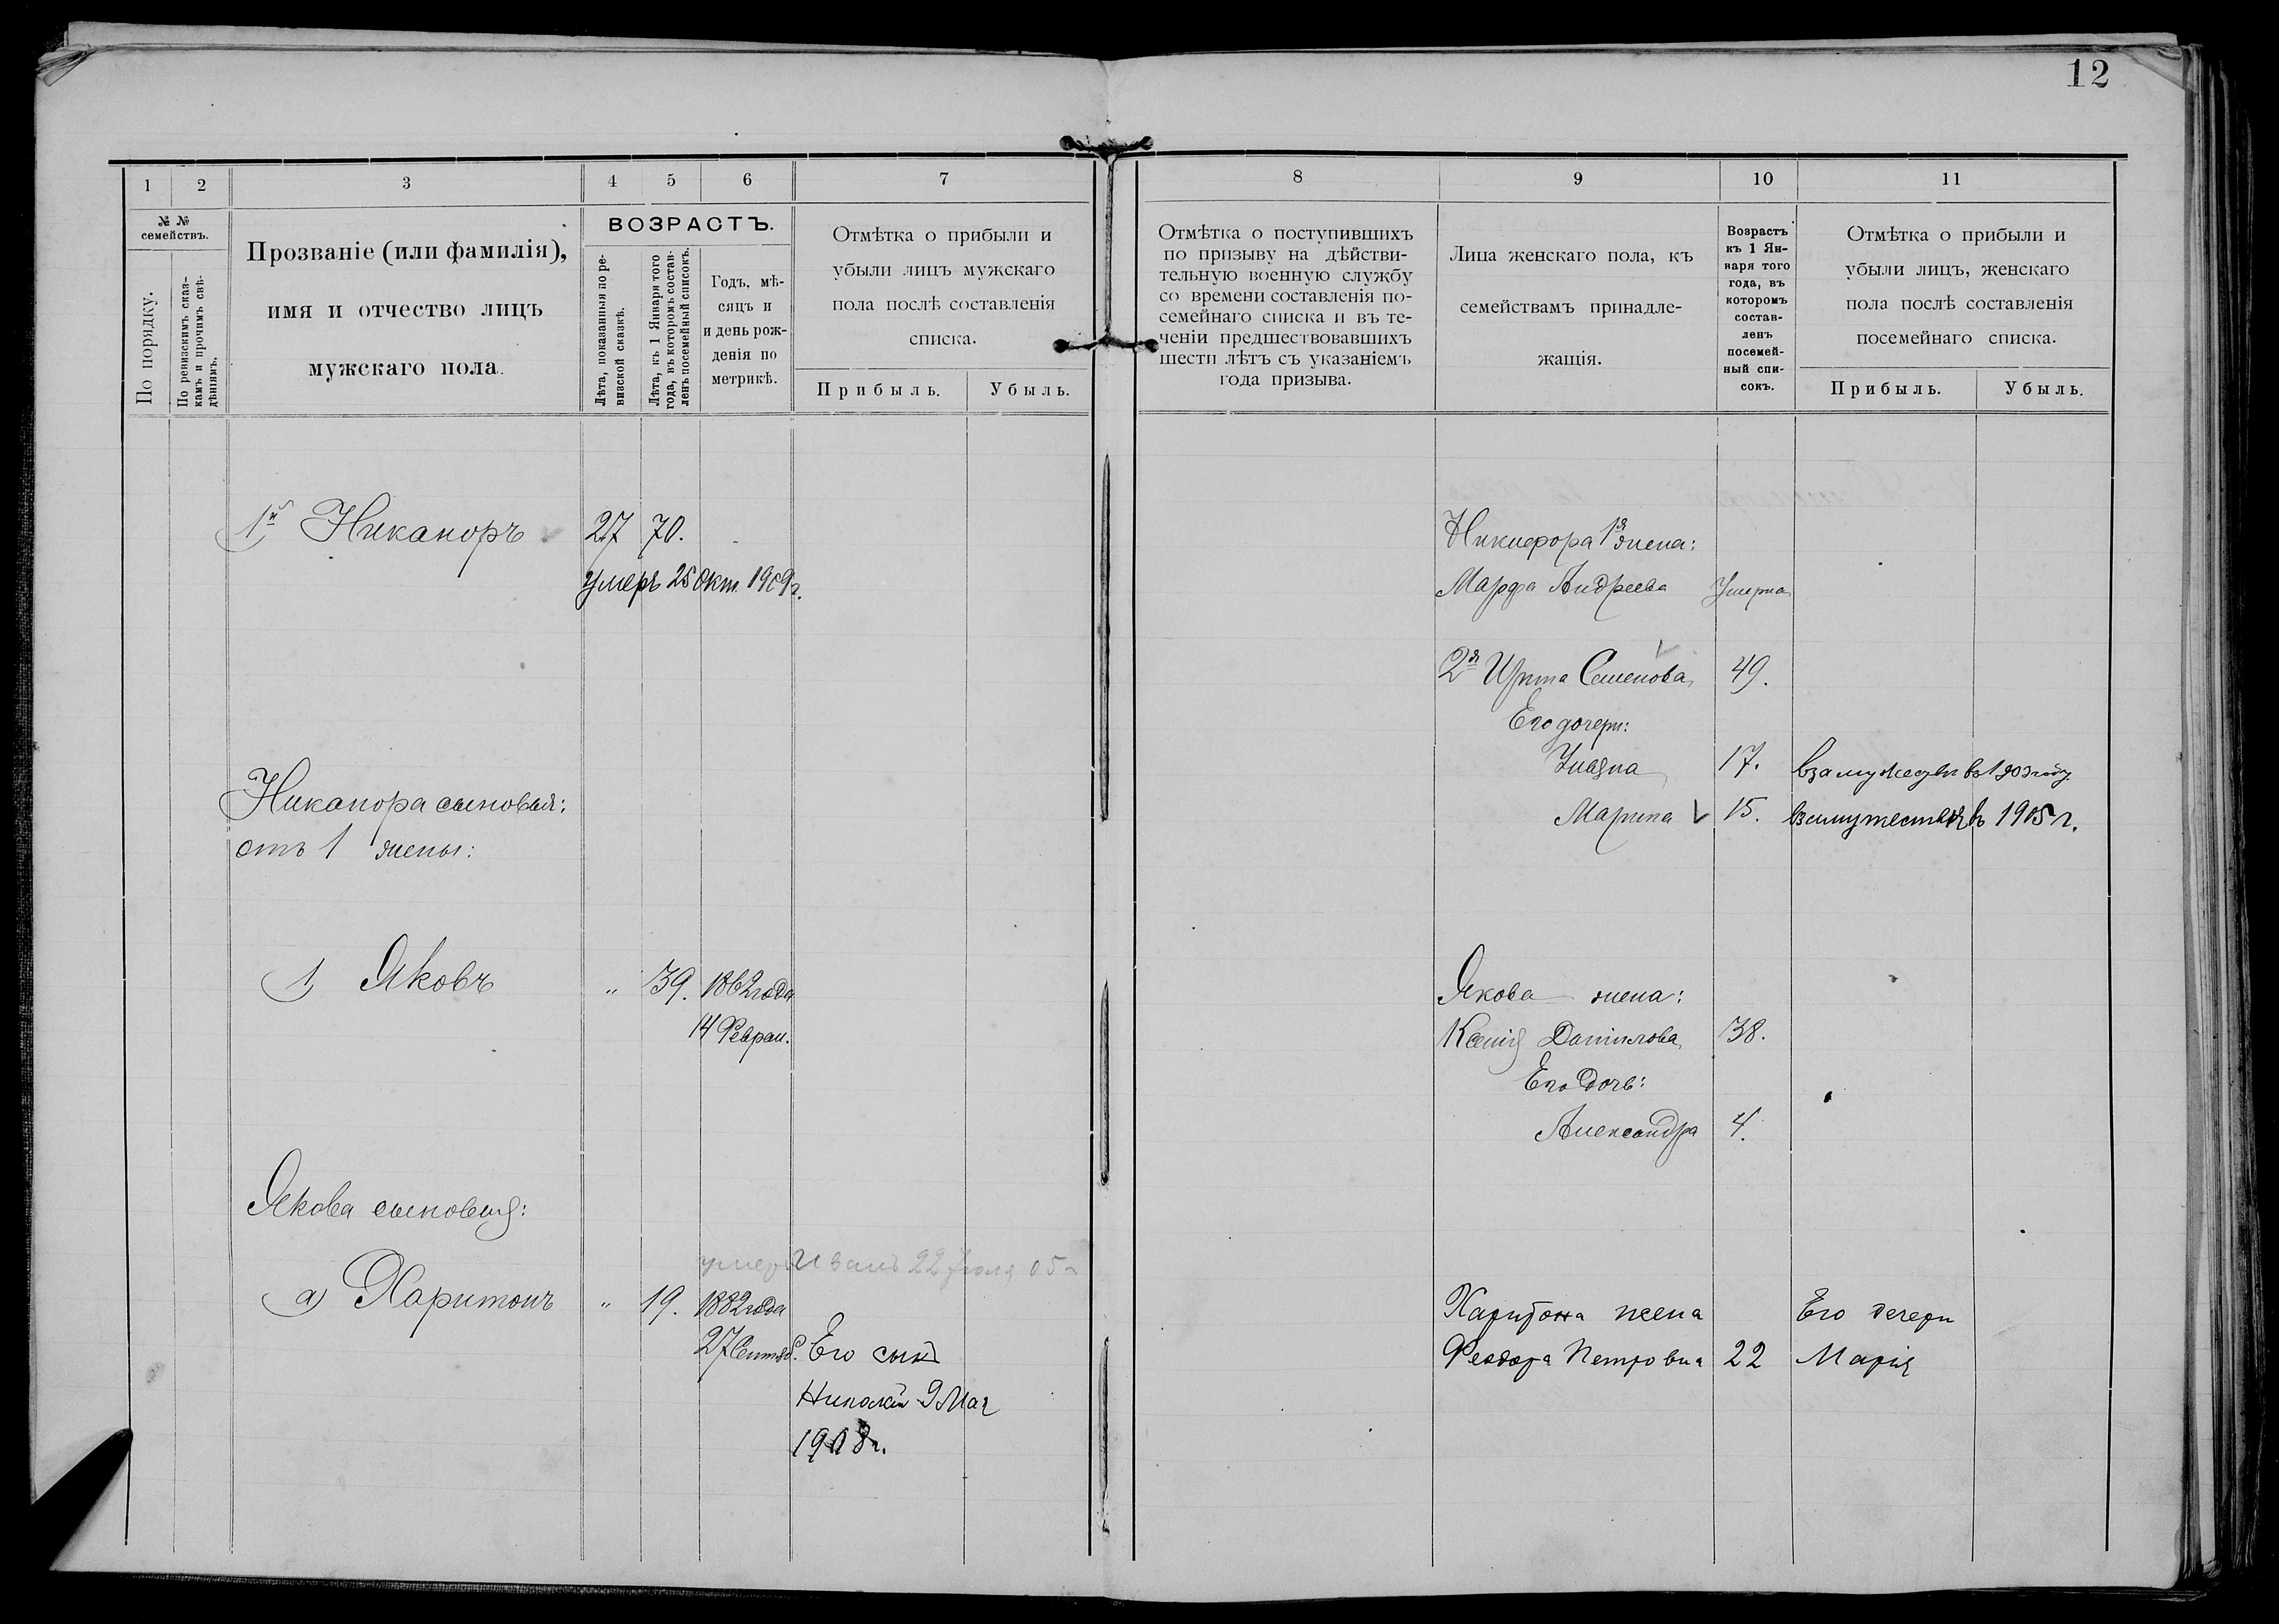 12
1 2 3 4 5 6 7
№ №
семействъ.
По порядку.
По ревизскимъ сказ-
камъ и прочимъ свѣ-
дѣніямъ.
Прозваніе (или фамилія),
имя и отчество лицъ
мужскаго пола.
ВОЗРАСТЪ.
Лѣта, показанныя по ре-
визской сказкѣ.
Лѣта, къ 1 Января того
года, въ которомъ состав-
ленъ посемейный списокъ.
Годъ, мѣ-
сяцъ и
и день рож-
денія по
метрикѣ.
Отмѣтка о прибыли и
убыли лицъ мужскаго
пола послѣ составленія
списка.
Прибыль. Убыль.
1й Никаноръ 27 70.
умеръ 25 Окт. 1909 г.
Никанора сыновья:
отъ 1 жены:
1) Яковъ " 39. 1862 года
14 Феврал.
Якова сыновья:
умеръ Иванъ 22 Іюля 05 г
а) Харитонъ " 19. 1882 года
27 Сентяб. Его сынъ
Николай 9 Мая
1908 г.
8 9 10 11
Отмѣтка о поступившихъ
по призыву на дѣйстви-
тельную военную службу
со времени составленія по-
семейнаго списка и въ те-
ченіи предшествовавшихъ
шести лѣтъ съ указаніемъ
года призыва.
Лица женскаго пола, къ
семействамъ принадле-
жащія.
Возрастъ
къ 1 Ян-
варя того
года, въ
которомъ
состав-
ленъ
посемей-
ный спи-
сокъ.
Отмѣтка о прибыли и
убыли лицъ, женскаго
пола послѣ составленія
посемейнаго списка.
Прибыль. Убыль.
Никифора 1я жена:
Марфа Андреева Умерла
2я Ирина Семенова 49.
Его дочери:
17. въ 1903 году
Марина 15. взамужествѣ въ 1905 г.
Якова жена:
Ксенія Данилова 38.
Его дочь:
Александра 4.
Харитона жена Его дочери
Феодора Петровна 22 Марія